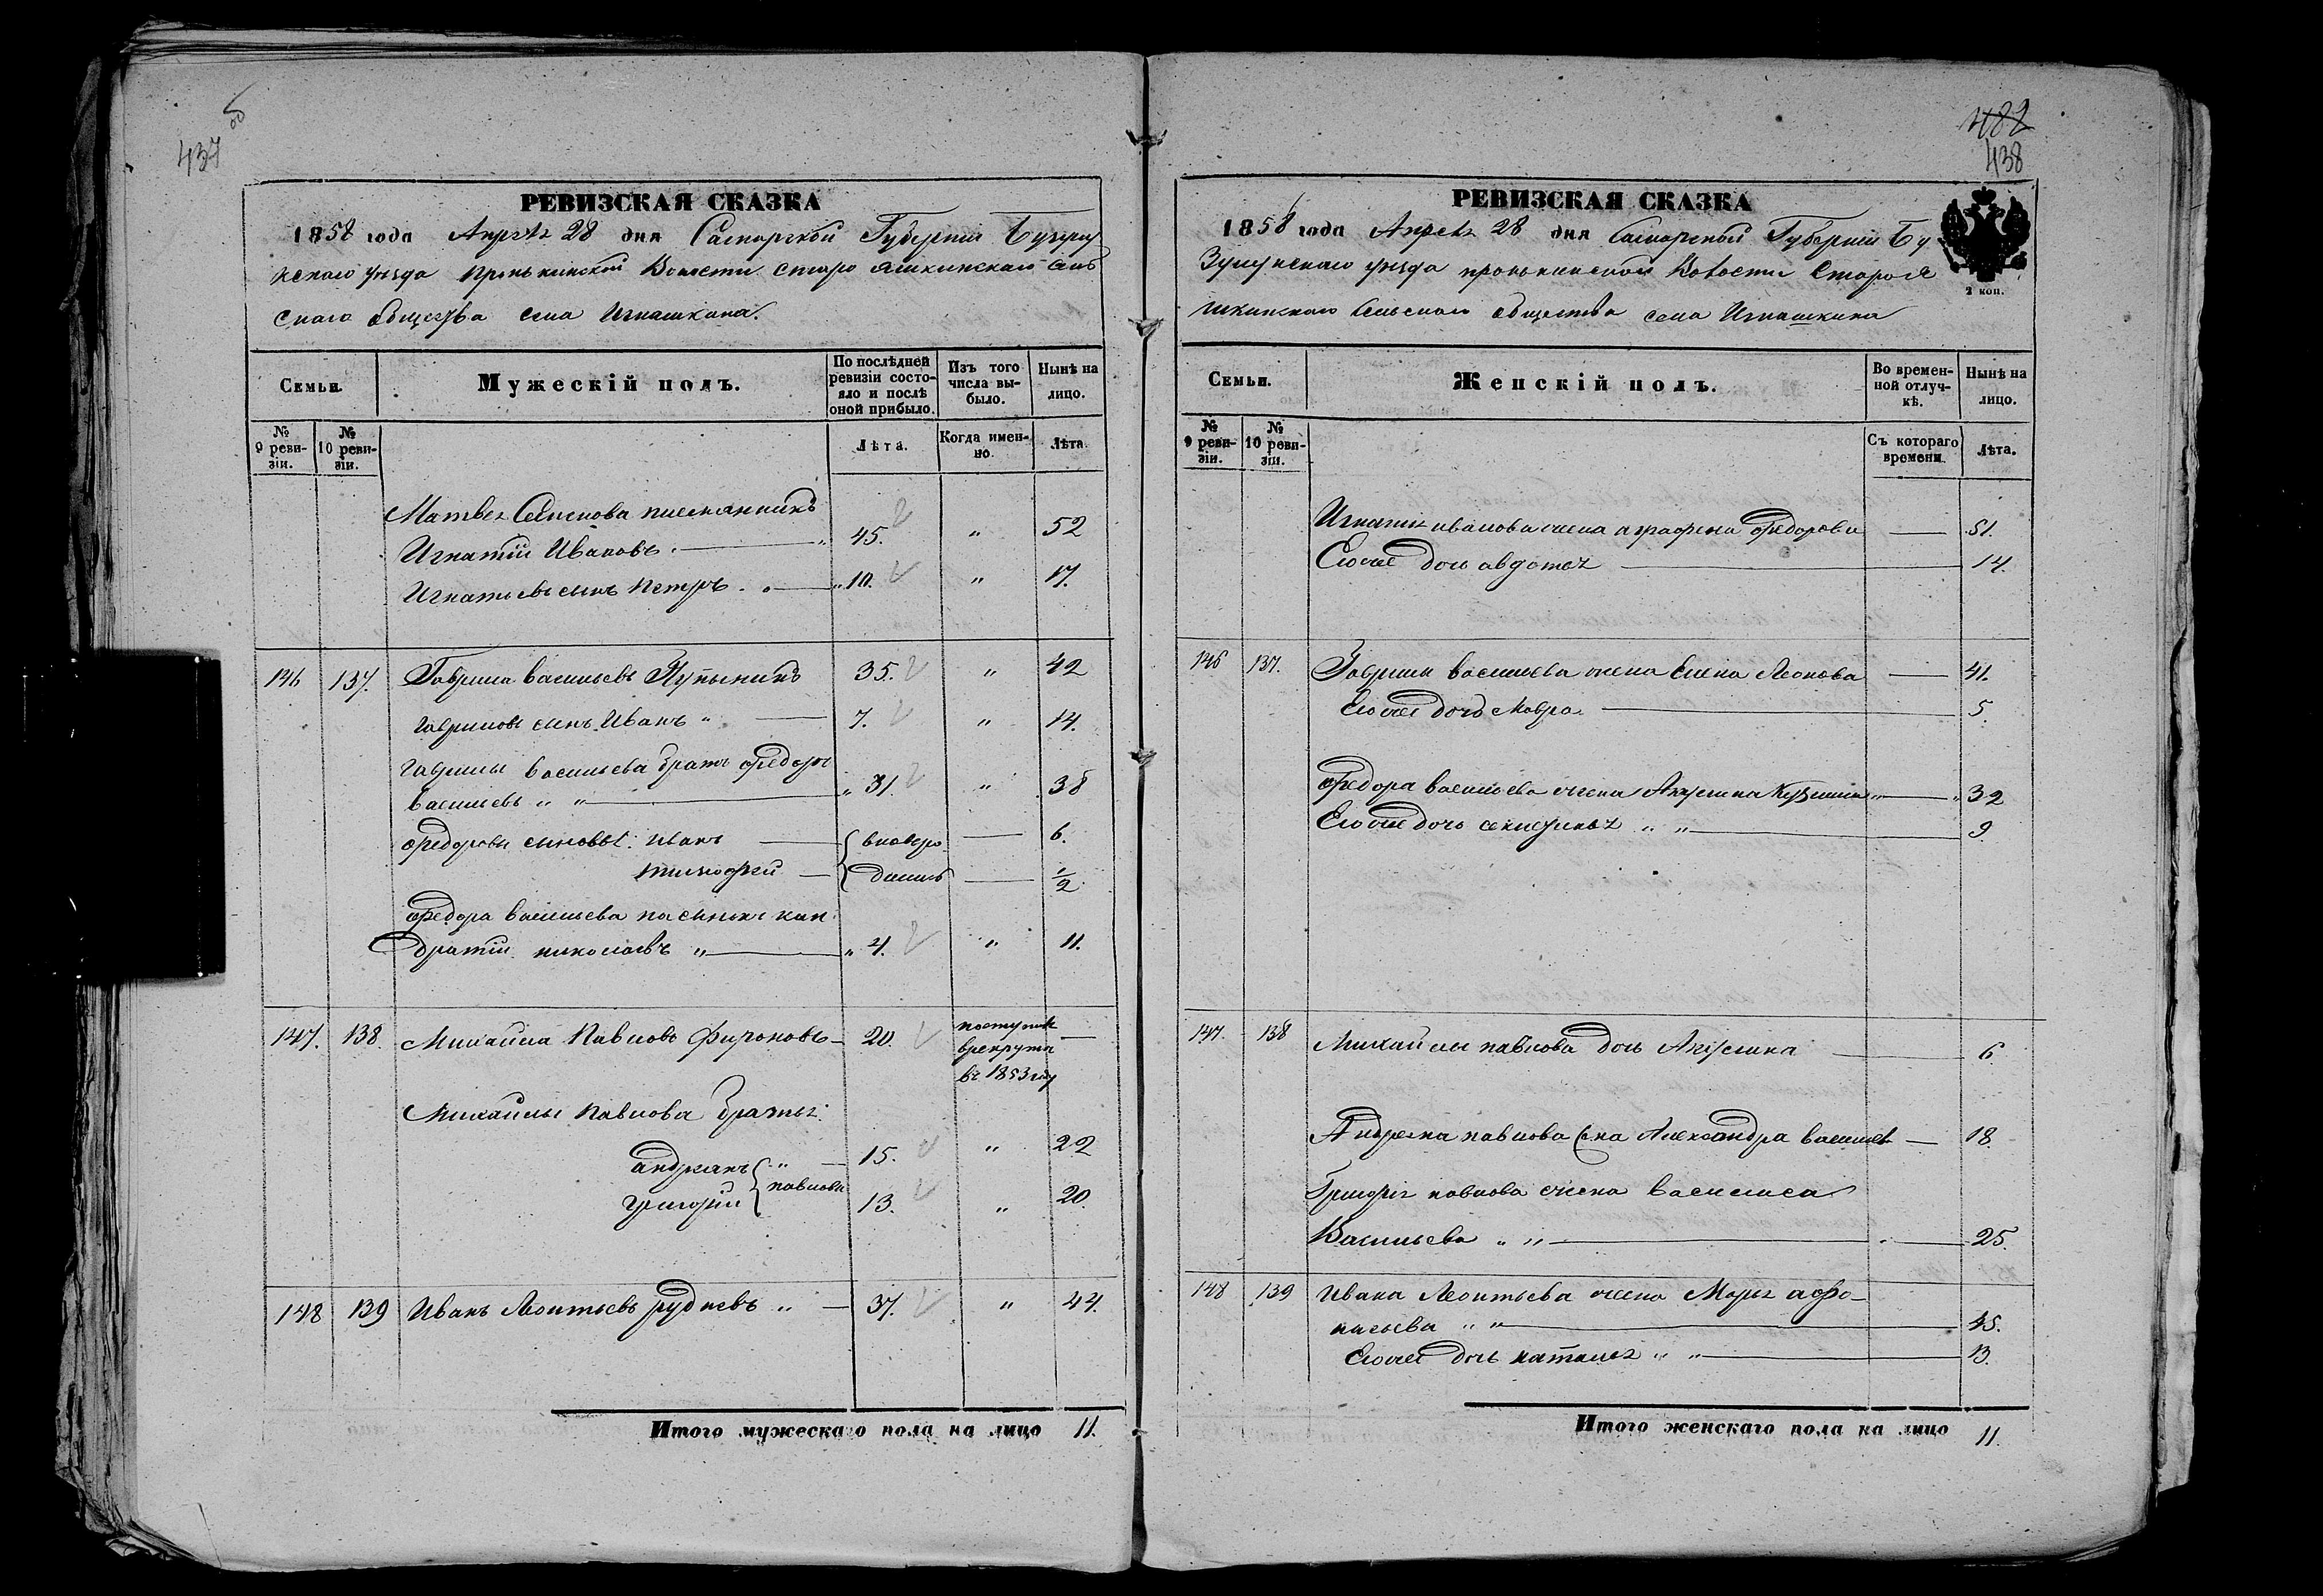 437 об
РЕВИЗСКАЯ СКАЗКА
1858 года Апреля 28 дня Самарской Губернии Бузулу
кскаго уезда пронькинской Волости старо яшкинскаго сель
скаго общества села Игнашкина.
Семьи.
Мужескій полъ.
По послѣдней ревизіи состояло и послѣ оной прибыло.
Изъ того числа выбыло.
Нынѣ на лицо.
№ 9 ревизіи.
№ 10 ревизіи.
Лѣта.
Когда именно.
Лѣта.
Матвея Семенова племянникъ
Игнатій Ивановъ. 45. " 52
Игнатьевъ сынъ Петръ. " 10. " 17.
146 137. Гаврила васильевъ 35. " 42
гавриловъ сынъ Иванъ " 7. " 14.
гаврилы васильева братъ федоръ
васильевъ " " " 31. " 38
федоровы сыновья: иванъ вновьро 6.
тимофей дились 1/2
федора васильева пасынокъ кон
дратій николаевъ " " 4. " 11.
147. 138. Михайла Павловъ 20. поступилъ
врекруты
въ 1853 году
Михайлы павлова братья:
андреянъ " 15. " 22
григорій павловы 13. " 20.
148 139 Иванъ Леонтьевъ рудневъ " 37. " 44.
Итого мужескаго пола на лицо 11.
482
438
РЕВИЗСКАЯ СКАЗКА
1858 года Апреля 28 дня Самарской Губернии Бу
зулукскаго уезда пронькинской Волости Староя
шкинскаго сельскаго общества села Игнашкина
2 коп.
Семьи.
Женскій полъ.
Во временной отлучкѣ.
Нынѣ на лицо.
№ 9 ревизіи.
№ 10 ревизіи.
Съ котораго времени.
Лѣта.
Игнатія иванова жена аграфена федорова 51.
Егоже дочь авдотья 14.
146 137. Гаврилы васильева жена Елена Леонова 41.
Егоже дочь Мавра 5.
федора васильева жена Акулина Кузмина " " 32
Егоже дочь " " 9.
147. 138 Михайлы павлова дочь Акулина 6
Андреяна павлова жена Александра васильев 18.
Григорія павлова жена василиса
Васильева " " 25.
148 139 Ивана Леонтьева жена Марья афо-
насьева " " 45.
Егоже дочь наталья " " 13.
Итого женскаго пола на лицо 11.